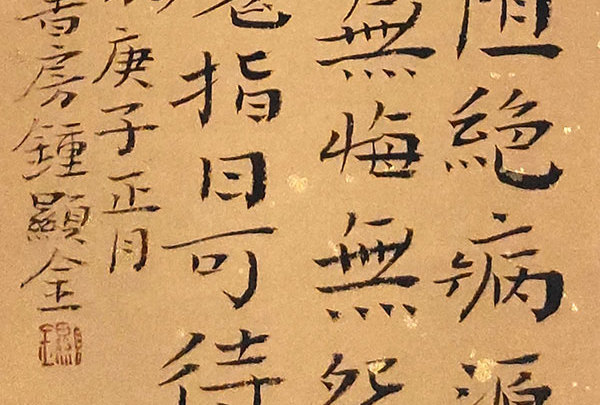 絕病源
無悔無怨
指日可待
庚子正月
書房鍾顯金